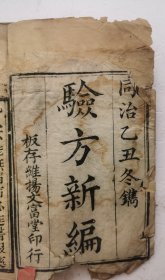 同治乙丑冬鐫
驗方新編
板存維揚文富堂印行